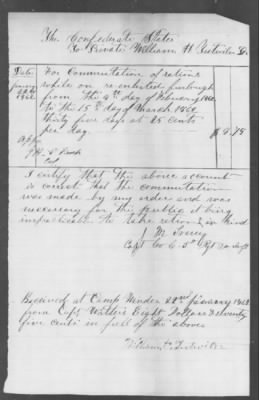 The Confederate States
To Private William H
Date
For Commutation of rations
while on re enlisted furlough
from the 9th day of February 1862
to the 15th day of March 1862
thirty five days at 25 cents
per day.
$ 8.75
I certify that the above account
is correct that the commutation
was made by my order and was
necessary for the public it being
impracticable to take rations in kind
J M
Capt Co
Received at Camp 22nd 1862
from Capt Eight Dollars & seventy
five cents in full of the above
William H